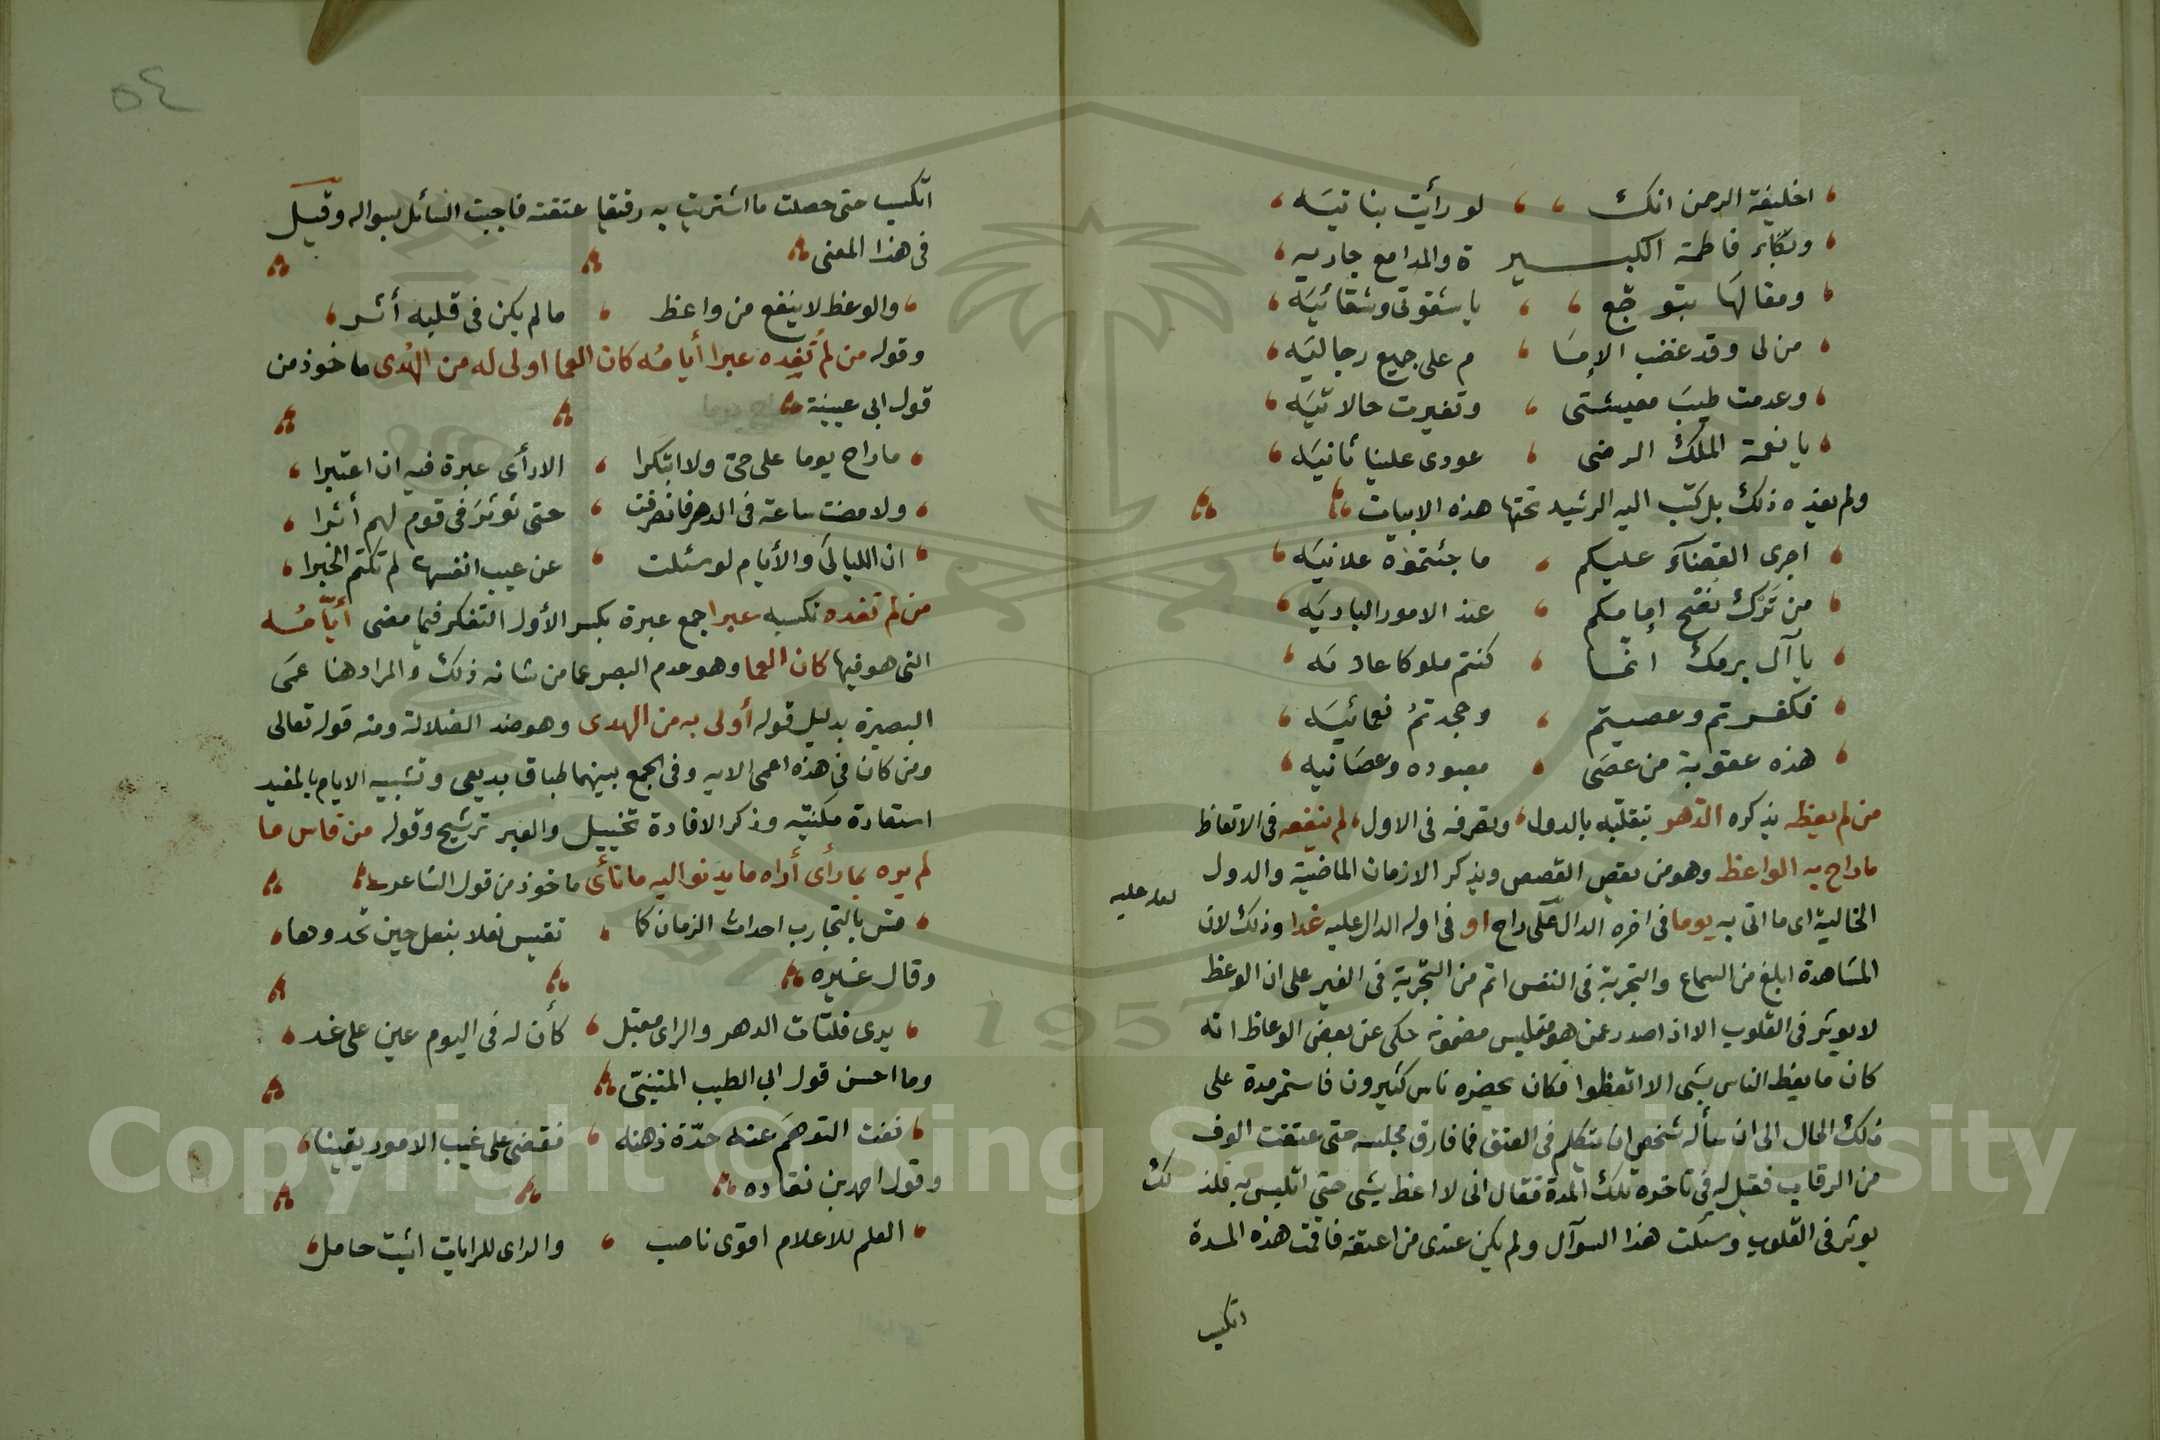 اخليفة الرحمن انك ، ، لو رأيت بناتيَه ،
وبكاء فاطمة الكبـــير ة والمدامع جاريه ،
ومقالهَا بتوجّع ، ، يا شقوتى وشقائيَه ،
من لى وقد غضب الإمَا ، م على جميع رجاليَه ،
وعدمت طيبَ معيشتى ، وتغيرت حالاتيَه ،
يا نعمة الملك الرضى ، عودى علينا ثانيَه ،
ولم يفده ذلك بل كتب اليه الرشيد تحتها هذه الابيات
اجرى القضآءَ عليكم ، ما جئتموْه علانيَه ،
من تَرْك نُصْح إمامكم ، عند الامور الباديَه ،
يا آل برمك إنمّا ، كنتم ملوكا عاديَه ،
فكفرتم وعصيتم ، وجحدتمُ نعمائيَه ،
هذه عقوبة من عصَى ، معبوده وعصَانيه ،
من لم يعظه يذكره الدّهر بتقلّبه بالدول ، وتصرفه فى الاول ، لم ينفعه فى الاتعاظ
ماراح به الواعظ وهو من يقص القصص ويذكر الازمان الماضيّة والدول
الخالية اى ما اتى به يوما فى اخره الدال عَلَى راح او فى اوله الدال عليه غدا وذلك لان
المشاهدة ابلغ من السماع والتجربة فى النفس اتم من التجّربة فى الغير على ان الوعظ
لا يوثر فى القلوب الا اذا صدر عمن هو متلبس مضمونه حكى عن بعض الوعاظ انه
كان ما يعظ الناس بشى الا اتعظوا فكان يحضره ناس كثيرون فاستمر مدة على
ذلك الحال الى ان سأله شخص ان يتكلم فى العتق فما فارق مجلسه حتى عتقت الوف
من الرقاب فقيل له فى تاخره تلك المدة فقال انى لا اعظ بشى حتى اتلبس به فلذلك
يوثر فى القلوب وسئلت هذا السوآل ولم يكن عندى من اعتقه فاقمت هذه المدة
اتكسب
٥٤
اتكسب حتى حصلت ما اشتريت به رقيقا عتقته فاجبت السائل بسواله وقيل
فى هذا المعنى
، والوعظ لا ينفع من واعظ ، ما لم يكن فى قلبه أثر ،
وقوله من لم تُفِده عبرا أيامُه كان العما اولى له من الهُدى ماخوذ من
قول ابى عيينة
، ما راح يوما على حىّ ولا ابتكرا ، الا رأى عبرة فيه ان اعتبرا ،
، ولا مضت ساعة فى الدهر فانصرفت ، حتى تؤثرَ فى قوم لهم أثرا ،
، ان الليالىَ والأيام لو سئلت ، عن عيب انفسها لم تكتم الخبرا ،
من لم تفده تكسبه عبرا جمع عبرة بكسر الأول التفكر فيما مضى أيّامُه
التى هو فيها كان العما وهو عدم البصر عما من شانه ذلك والمراد هنا عمَى
البصيرة بدليل قوله أولى به من الهدى وهو ضد الضلالة ومنه قوله تعالى
ومن كان فى هذه اعمى الايه وفى الجمع بينهما طباق بديعى وتشبيه الايام بالمفيد
استعارة مكنيّه وذكر الافادة تخييل والعبر ترشيح وقوله من قاس ما
لم يره بما رأى أراه ما يدنو اليه ما نأى ماخوذ من قول الشاعر
، قس بالتجارب احداث الزمان كما ، تقيس نعلا بنعل حين تحدوها ،
وقال غيره
، يرى فلتات الدهر والراى مقبل ، كأن له فى اليوم عين على غد ،
وما احسن قول ابى الطيب المتنبّى
، نفت التوهمَ عنه حدّة ذهنه ، فقضى على غيب الامور يقينا ،
وقول احمد بن نقاده
، العلم للاعلام اقوى ناصب ، والراى للرايات اثبت حامل ،
Copyright © King Saud University
1957